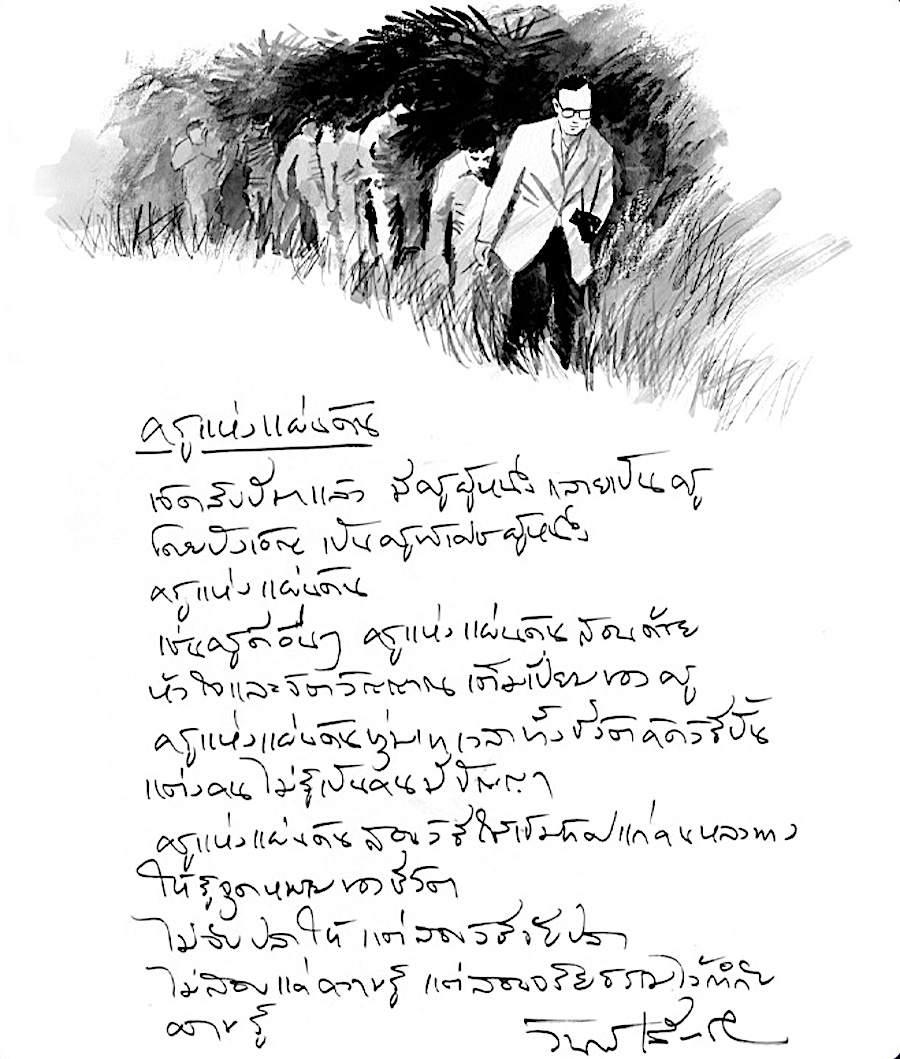 ครูแห่งแผ่นดิน
เจ็ดสิบปีมาแล้ว มีครูผู้หนึ่ง กลายเป็นครู
โดยบังเอิญ เป็นครูพิเศษผู้หนึ่ง
ครูแห่งแผ่นดิน
เช่นครูดีอื่นๆ ครูแห่งแผ่นดินสอนด้วย
หัวใจและจิตวิญญาณเต็มเปี่ยมของครู
ครูแห่งแผ่นดินทุ่มเทเวลาทั้งชีวิตคิดวิธีปั้น
แต่งคนไม่รู้เป็นคนมีปัญญา
ครูแห่งแผ่นดินสอนวิธีใช้เข็มทิศแก่คนหลงทาง
ให้รู้จุดหมายของชีวิต
ไม่จับปลาให้ แต่สอนวิธีจับปลา
ไม่สอนแค่ความรู้ แต่สอนจริยธรรมไว้กำกับ
ความรู้